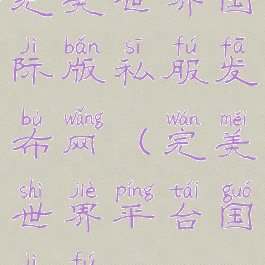 完美世界国
jì bǎn sī fú fā
际版私服发
bù wǎng wán měi
布网（完美
shì jiè píng tái guó
世界平台国
jì fú